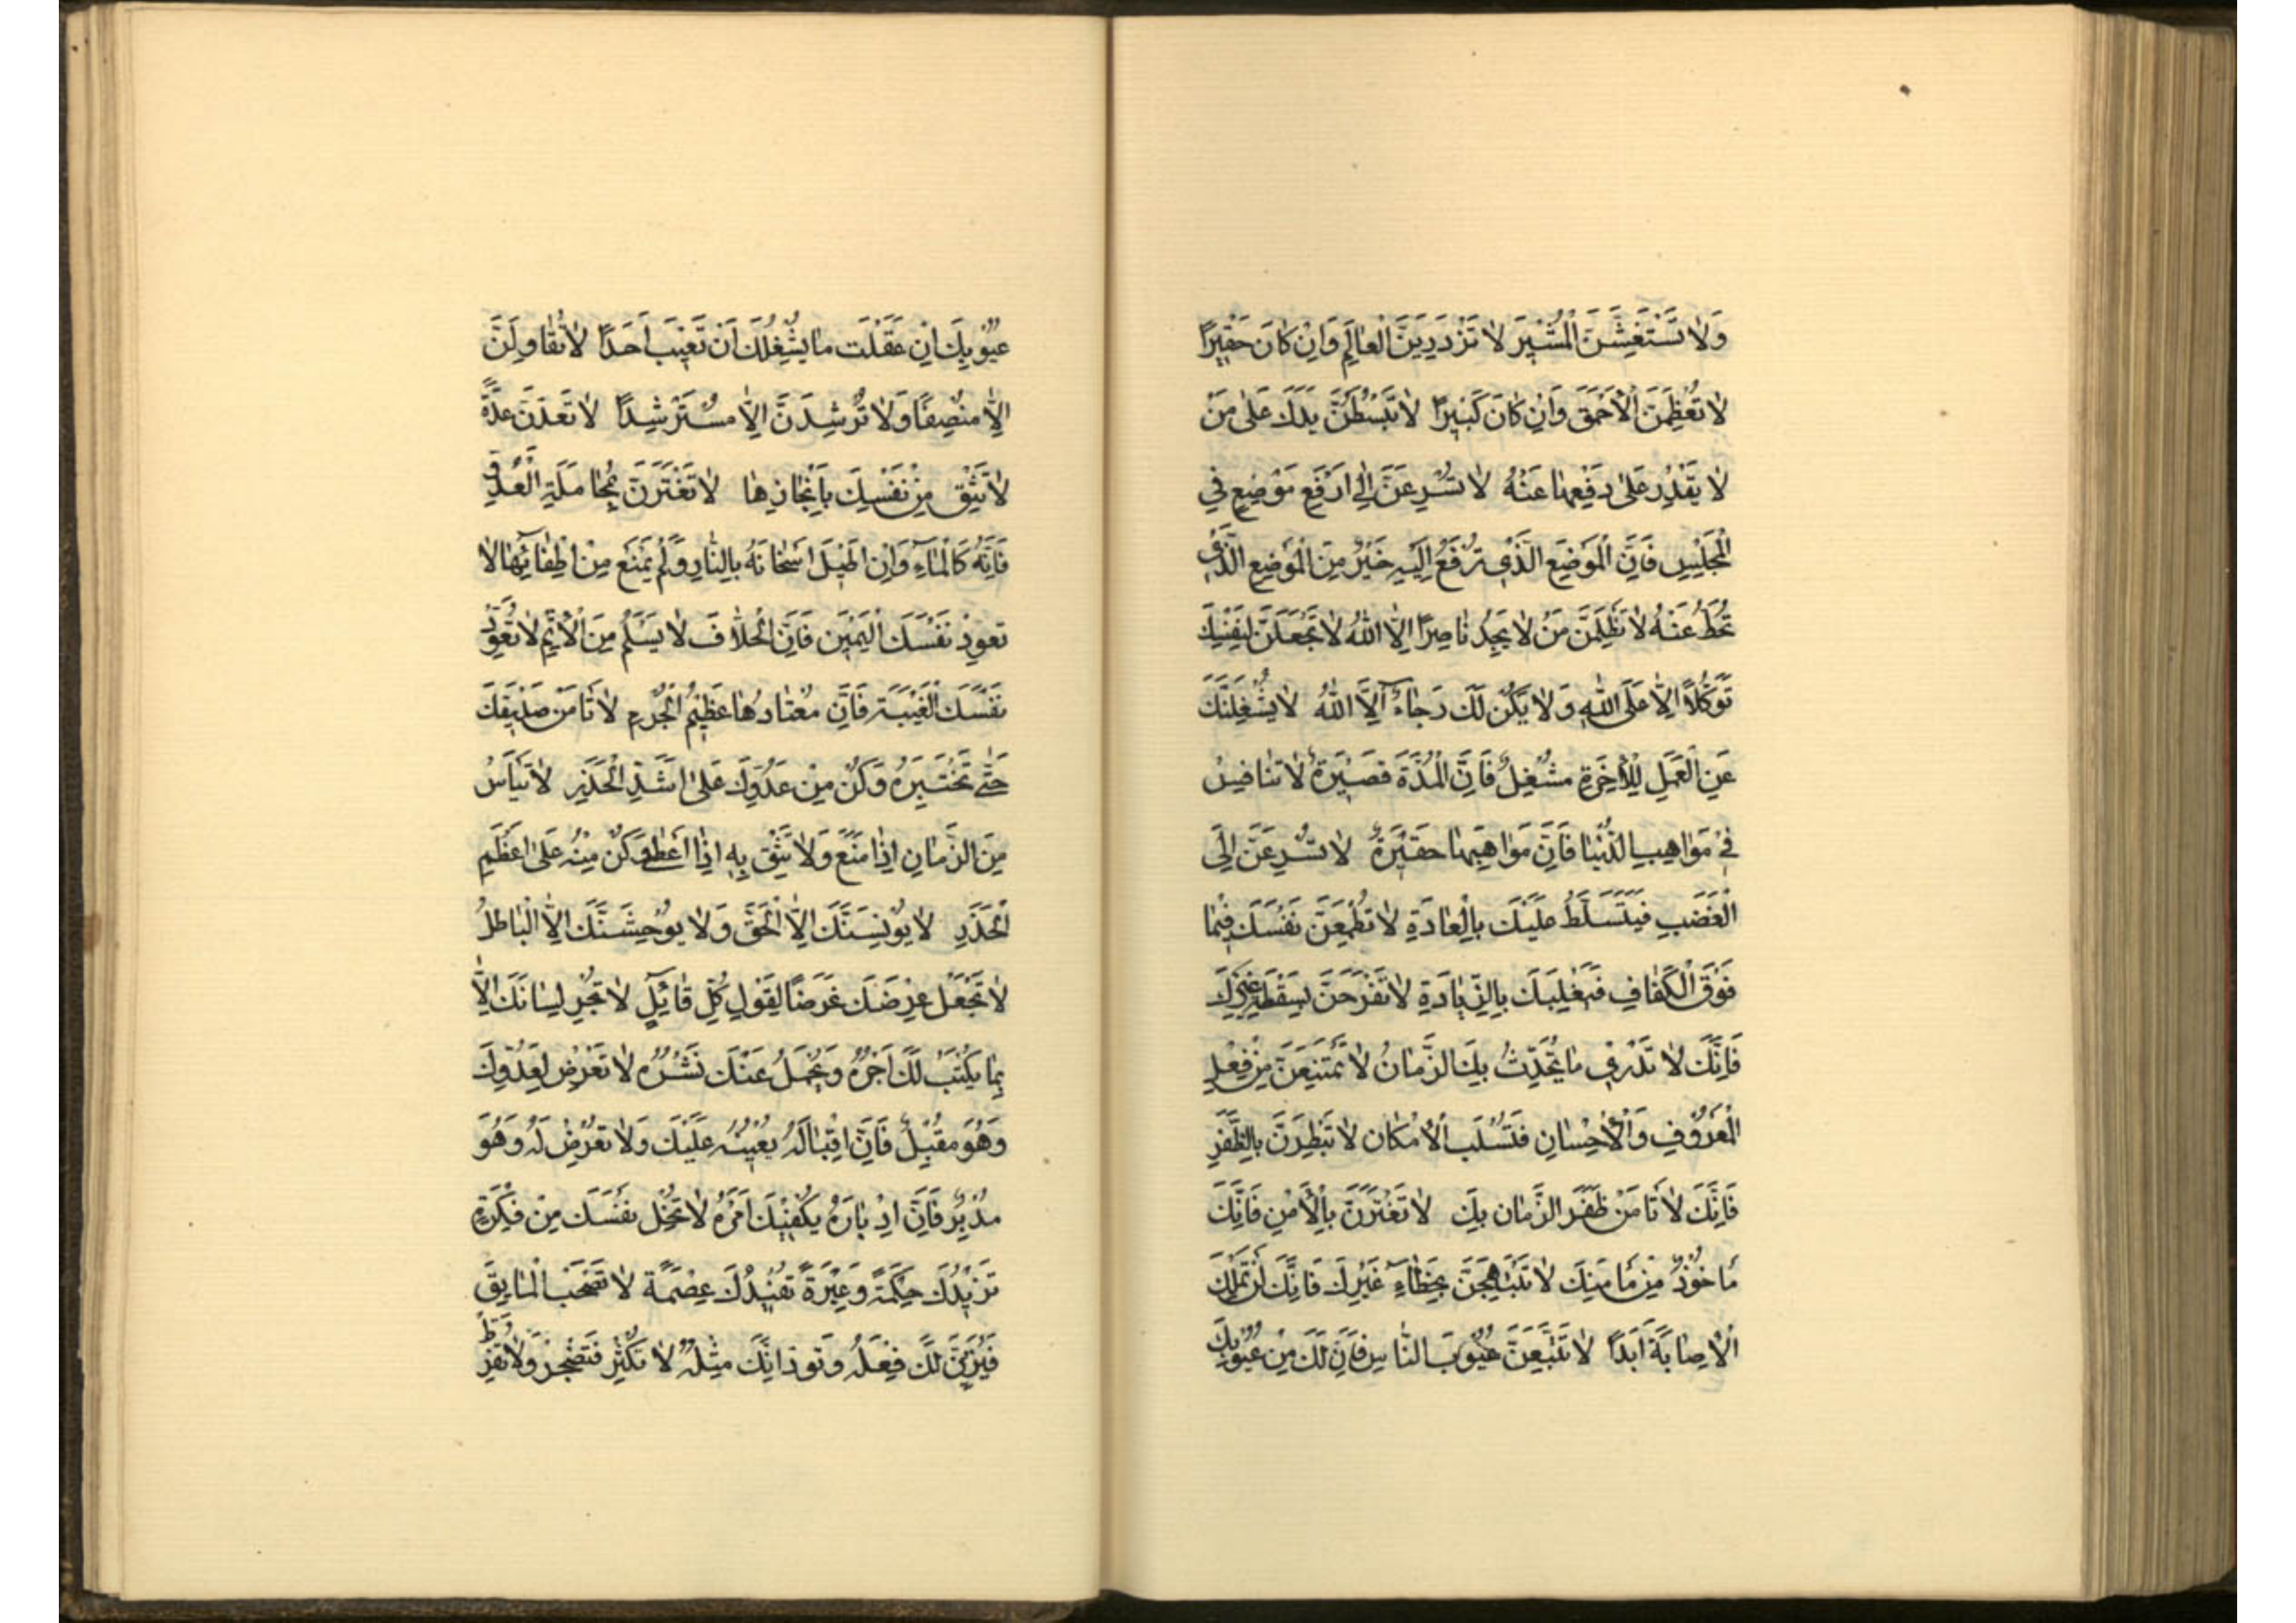 وَلَا تَسْتَغِشَّنَ الْمُشْیرَ لَا تَزْدَرِیَنَّ الْعَالِمِ وَاِنْ کَانَ حَقْیرًا
لَا تُعْظِمَنَّ الْاَحْمَقَ وَاِنْ کَانَ کَبْیرًا لَا تَبْسُطَنَّ یَدَكَ عَلٰی مَنْ
لَا یَقْدِرُ عَلٰی دَفْعِهَا عَنْهُ لَا تُسْرِعَنَّ اِلٰی اَرْفَعِ مَوْضِعٍ فِي
الْمَجْلِسِ فَاِنَّ الْمَوْضِعَ الَّذْی تُرْفَعُ اِلَیْهِ خَیْرٌ مِنَ الْمَوْضِعِ الَّذْی
تُحَطُّ عَنْهُ لَا تَظْلِمَنَّ مَنْ لَا یَجِدُ نَاصِرًا اِلَّا اللّٰهُ لَا تَجْعَلَنَّ لِنَفْسِكَ
تَوَکُّلًا اِلَّا عَلَی اللّٰهِ وَلَا یَکُنْ لَكَ رَجَاءٌ اِلَّا اللّٰهُ لَا یَشْغَلَنَّكَ
عَنِ الْعَمَلِ لِلْاٰخِرَةِ مَشْغِلٌ فَاِنَّ الْمُدَّةَ قَصْیرَةٌ لَا تُنَافِسْ
فْی مَوَاهِبِ الدُّنْیَا فَاِنَّ مَوَاهِبَهَا حَقْیرَةٌ لَا تُسْرِعَنَّ اِلَی
الْغَضَبِ فَیَتَسَلَّطَ عَلَیْكَ بِالْعَادَةِ لَا تُطْمِعَنَّ نَفْسَكَ فْیمَا
فَوْقَ الْکَفَافِ فَیَغْلِبَكَ بِالزِّیَادَةِ لَا تَفْرَحَنَّ بِسَقْطَةِ غَیْرِكَ
فَاِنَّكَ لَا تَدْرْی مَا یُحَدِّثُ بِكَ الزَّمَانُ لَا تَمْتَنِعَنَّ مِنْ فِعْلِ
الْمَعْرُوْفِ وَالْاِحْسَانِ فَتُسْلَبَ الْاِمْکَانَ لَا تَبْطَرَنَّ بِالظَّفَرِ
فَاِنَّكَ لَا تَأْمَنْ ظَفَرَ الزَّمَانِ بِكَ لَا تَغْتَرَنَّ بِالْاَمْنِ فَاِنَّكَ
مَأْخُوْذٌ مِنْ مَأْمَنِكَ لَا تَبْتَهِجَنَّ بِخَطَاءِ غَیْرِكَ فَاِنَّكَ لَنْ تَمْلِكَ
الْاِصَابَةَ اَبَدًا لَا تَتَّبِعَنَّ عُیُوْبَ النَّاسِ فَاِنَّ لَكَ مِنْ عُیُوْبِكَ
عُیُوْبِكَ اِنْ عَقَلْتَ مَا یَشْغَلُكَ اَنْ تَعْیبَ اَحَدًا لَا تُقَاوِلَنَّ
اِلَّا مُنْصِفًا وَلَا تُرْشِدَنَّ اِلَّا مُسْتَرْشِدًا لَا تَعِدَنَّ عِدَةً
لَا تَثِقْ مِنْ نَفْسِكَ بِاِنْجَازِهَا لَا تَغْتَرَنَّ بِمُجَامَلَةِ الْعَدُوِّ
فَاِنَّهُ کَالْمَاءِ وَاِنْ اُطْیلَ اِسْخَانُهُ بِالنَّارِ وَلَمْ یَمْنَعْ مِنْ اِطْفَائِهَا لَا
تُعَوِّدْ نَفْسَكَ الْیَمْینَ فَاِنَّ الْحَلَّافَ لَا یَسْلَمُ مِنَ الْاِثْمِ لَا تُعَوِّدْ
نَفْسَكَ الْغَیْبَةَ فَاِنَّ مُعْتَادَهَا عَظْیمُ الْجُرْمِ لَا تَأْمَنْ صَدْیقَكَ
حَتّٰی تَخْتَبِرَهُ وَکُنْ مِنْ عَدُوِّكَ عَلٰی اَشَدِّ الْحَذَرِ لَا تَیْأَسْ
مِنَ الزَّمَانِ اِذَا مَنَعَ وَلَا تَثِقْ بِهِ اِذَا اَعْطٰی وَکُنْ مِنْهُ عَلٰی اَعْظَمِ
الْحَذَرِ لَا یُوْنِسَنَّكَ اِلَّا الْحَقُّ وَلَا یُوْحِشَنَّكَ اِلَّا الْبَاطِلُ
لَا تَجْعَلْ عِرْضَكَ غَرَضًا لِقَوْلِ کُلِّ قَائِلٍ لَا تُجْرِ لِسَانَكَ اِلَّا
بِمَا یُکْتَبُ لَكَ اَجْرُهُ وَیَجْمُلُ عَنْكَ نَشْرُهُ لَا تَعَرَّضْ لِعَدُوِّكَ
وَهُوَ مُقْبِلٌ فَاِنَّ اِقْبَالَهُ یُعْینُهُ عَلَیْكَ وَلَا تَعَرَّضْ لَهُ وَهُوَ
مُدْبِرٌ فَاِنَّ اِدْبَارَهُ یَکْفْیكَ اَمْرَهُ لَا تُخْلِ نَفْسَكَ مِنْ فِکْرَةٍ
تَزْیدُكَ حِکْمَةً وَعِبْرَةً تُفْیدُكَ عِصْمَةً لَا تَصْحَبِ الْمَایِقَ
فَیُزَیِّنَ لَكَ فِعْلَهُ وَتَوَدُّ اَنَّكَ مِثْلُهُ لَا تُکْثِرْ فَتُضْجِرْ وَلَا تُفَرِّطْ